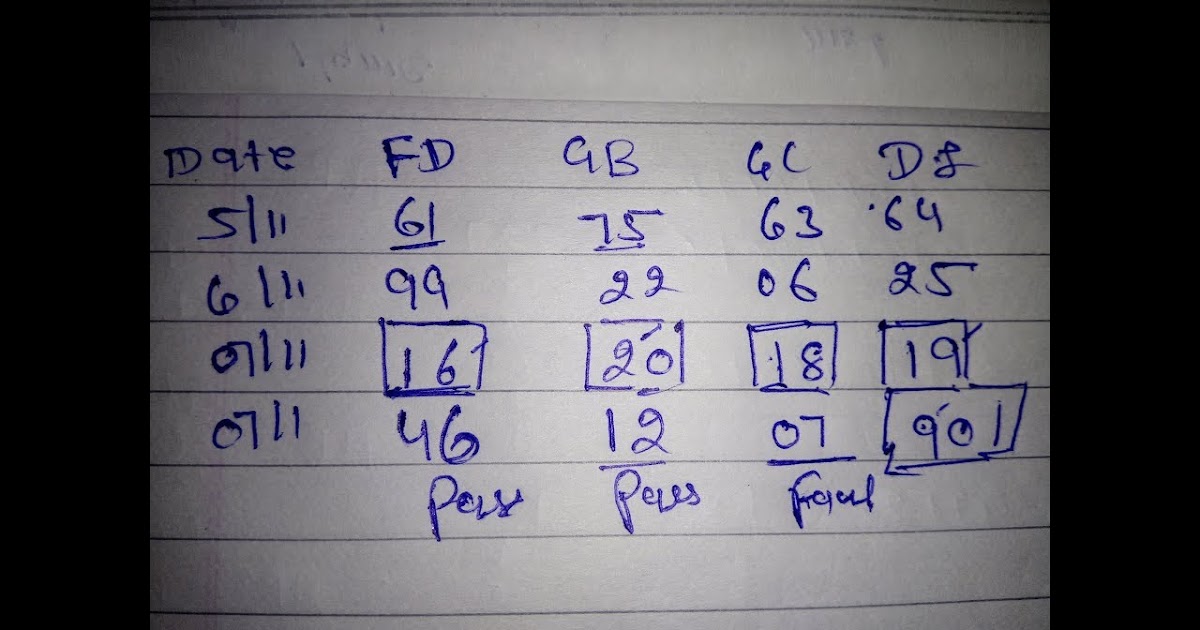 Date FD GB GC DS
5/11 61 75 63 64
6/11 99 22 06 25
07/11 16 20 18 19
07/11 46 12 07 90
Pass Pass Fail